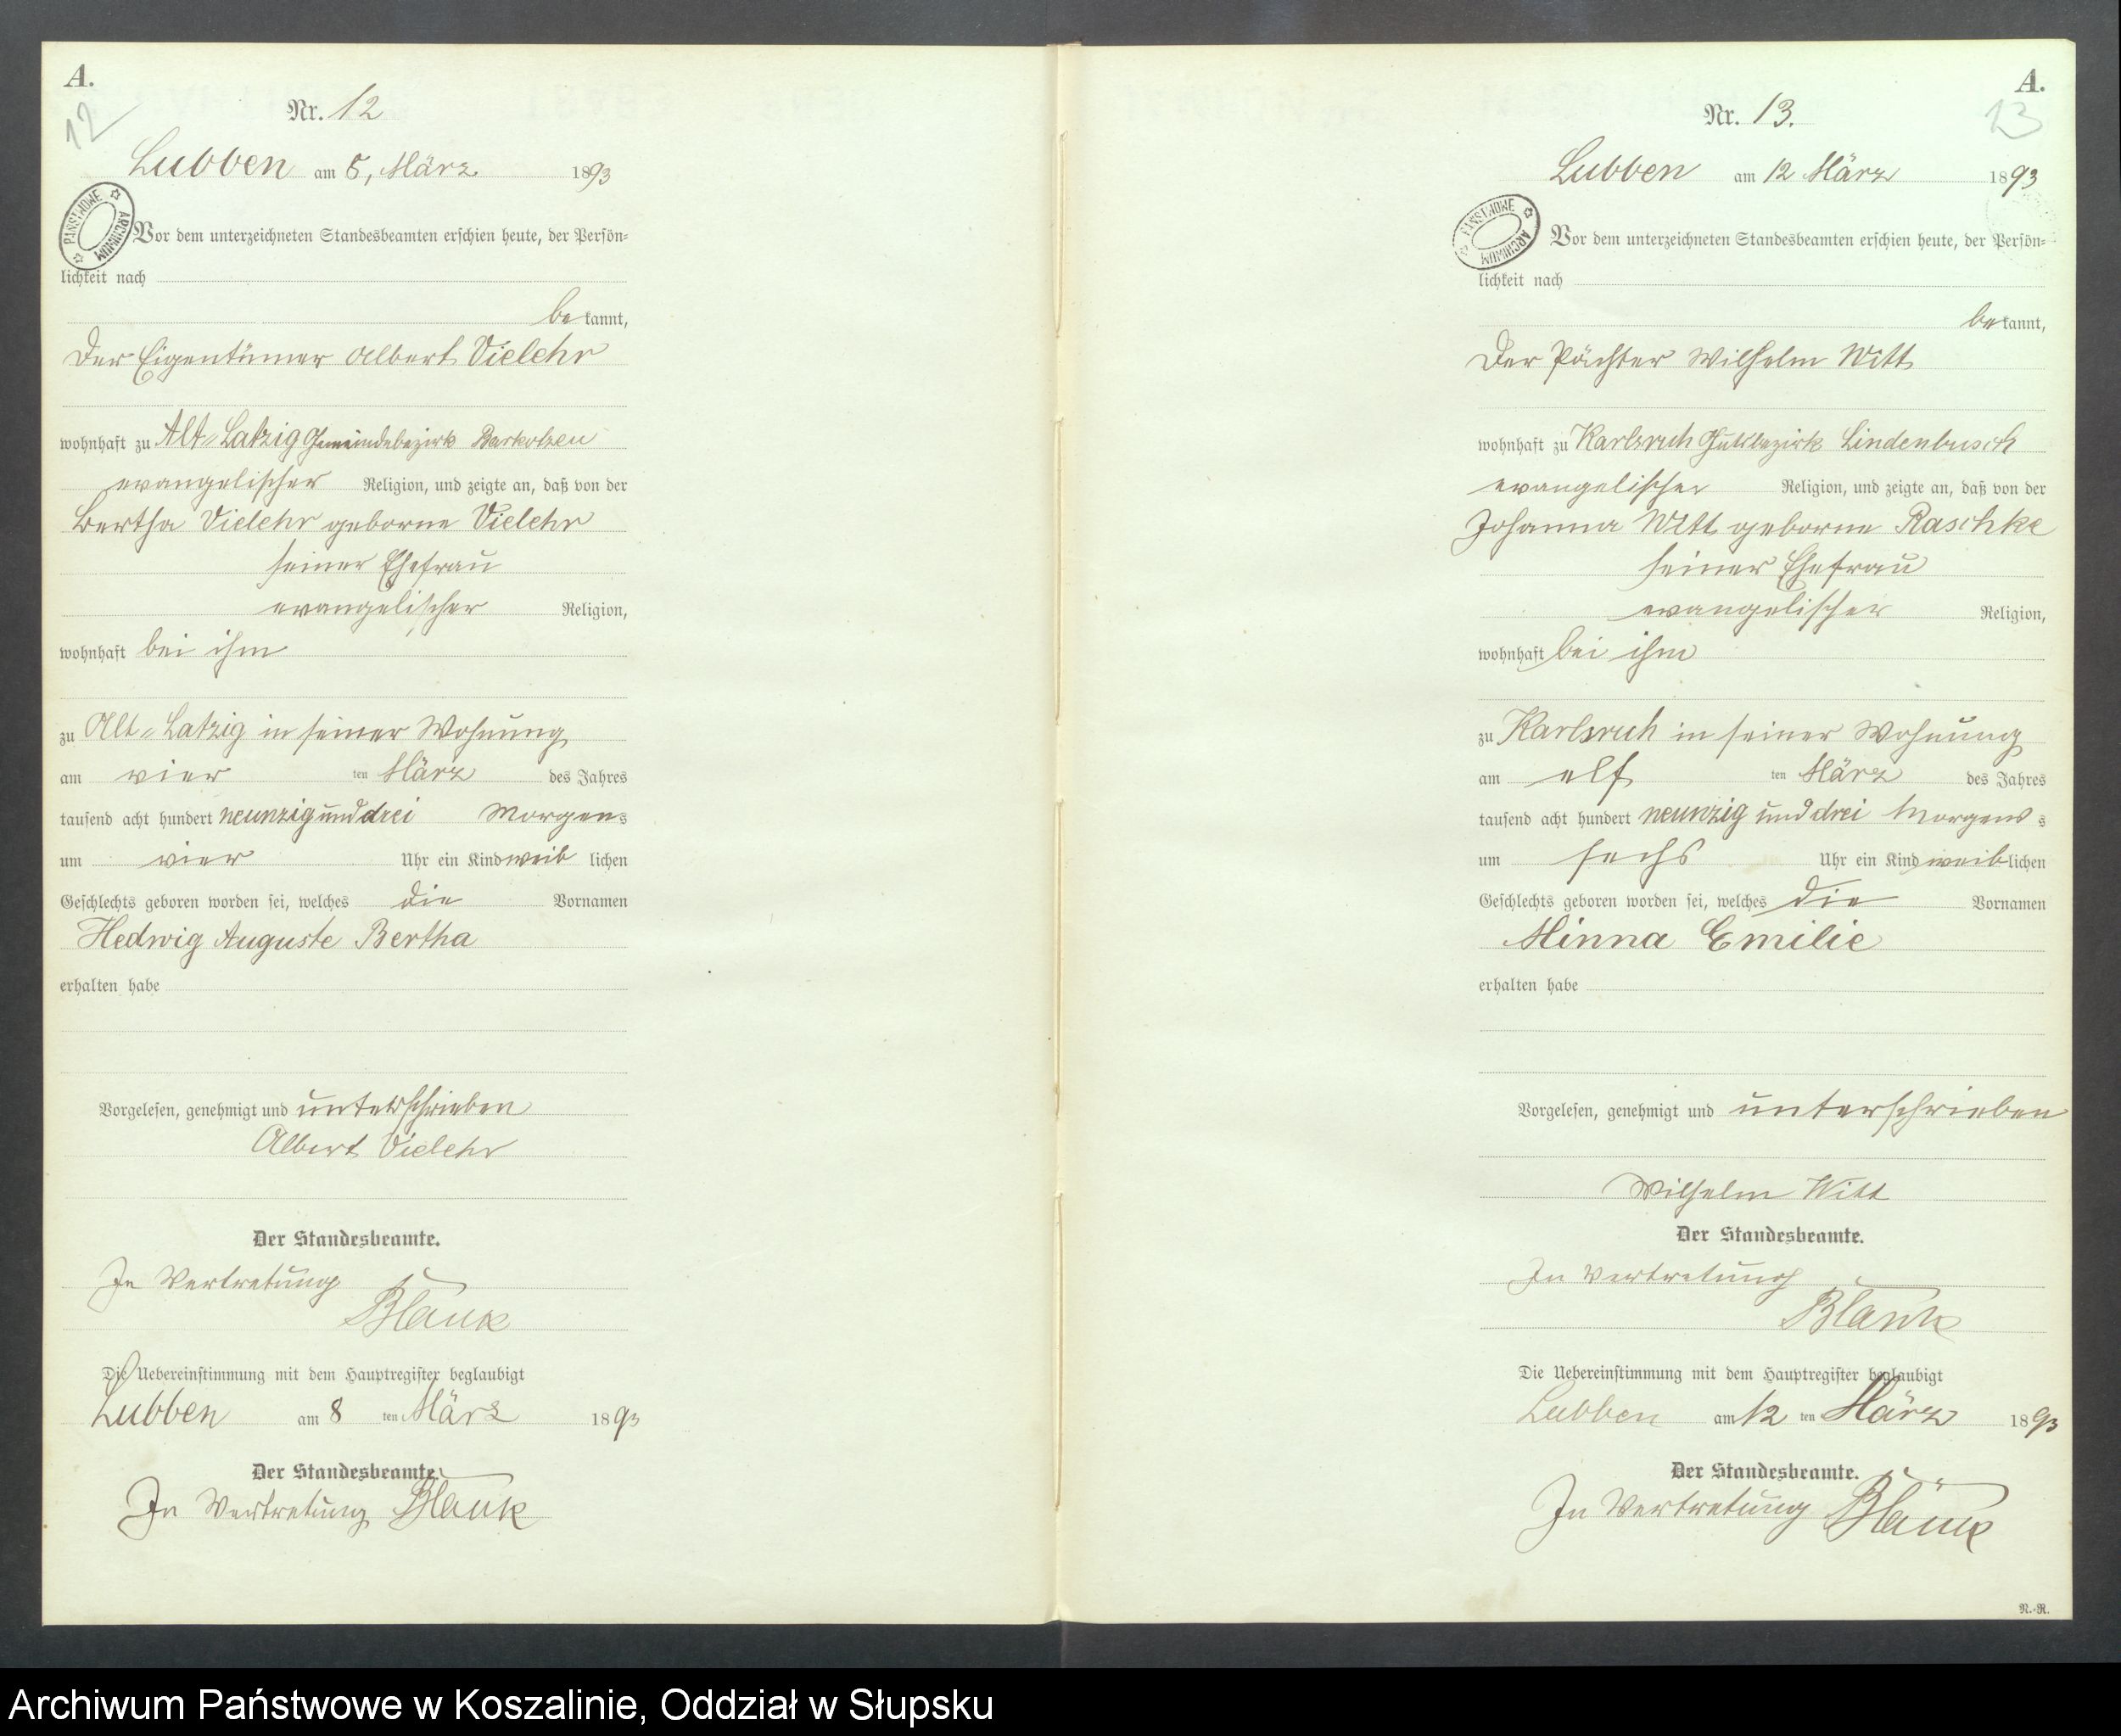 A.
12
Nr. 12
Lubben am 5, März 1893
PAŃSTWOWE ARCHIWUM
Vor dem unterzeichneten Standesbeamten erschien heute, der Persön=
lichkeit nach
bekannt,
Der Eigentümer Albert Vielehr
wohnhaft zu Alt=Latzig Gemeindebezirk Barkotzen
evangelischer Religion, und zeigte an, daß von der
Bertha Vielehr geborne Vielehr
seiner Ehefrau
evangelischer Religion,
wohnhaft bei ihm
zu Alt=Latzig in seiner Wohnung
am vier ten März des Jahres
tausend acht hundert neunzig und drei Morgens
um vier Uhr ein Kind weiblichen
Geschlechts geboren worden sei, welches die Vornamen
Hedwig Auguste Bertha
erhalten habe
Vorgelesen, genehmigt und unterschrieben
Albert Vielehr
Der Standesbeamte.
In Vertretung
Blank
Die Uebereinstimmung mit dem Hauptregister beglaubigt
Lubben am 8 ten März 1893
Der Standesbeamte.
In Vertretung Blank
A.
13
Nr. 13.
Lubben am 12 März 1893
PAŃSTWOWE ARCHIWUM
Vor dem unterzeichneten Standesbeamten erschien heute, der Persön=
lichkeit nach
bekannt,
Der Pächter Wilhelm Witt
wohnhaft zu Karlsruh Gutsbezirk Lindenbusch
evangelischer Religion, und zeigte an, daß von der
Johanna Witt geborne Raschke
seiner Ehefrau
evangelischer Religion,
wohnhaft bei ihm
zu Karlsruh in seiner Wohnung
am elf ten März des Jahres
tausend acht hundert neunzig und drei Morgens s
um sechs Uhr ein Kind weiblichen
Geschlechts geboren worden sei, welches die Vornamen
Minna Emilie
erhalten habe
Vorgelesen, genehmigt und unterschrieben
Wilhelm Witt
Der Standesbeamte.
In Vertretung
Blank
Die Uebereinstimmung mit dem Hauptregister beglaubigt
Lubben am 12 ten März 1893
Der Standesbeamte.
In Vertretung Blank
N.=R.
Archiwum Państwowe w Koszalinie, Oddział w Słupsku